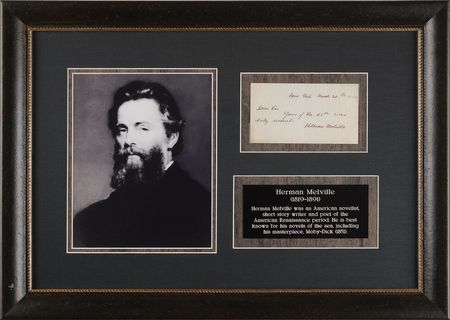 New York March 26th
Dear Sir
Yours of the 25th was
duly received.
Herman Melville
Herman Melville
(1819-1891)
Herman Melville was an American novelist,
short story writer and poet of the
American Renaissance period. He is best
known for his novels of the sea, including
his masterpiece, Moby-Dick (1851).